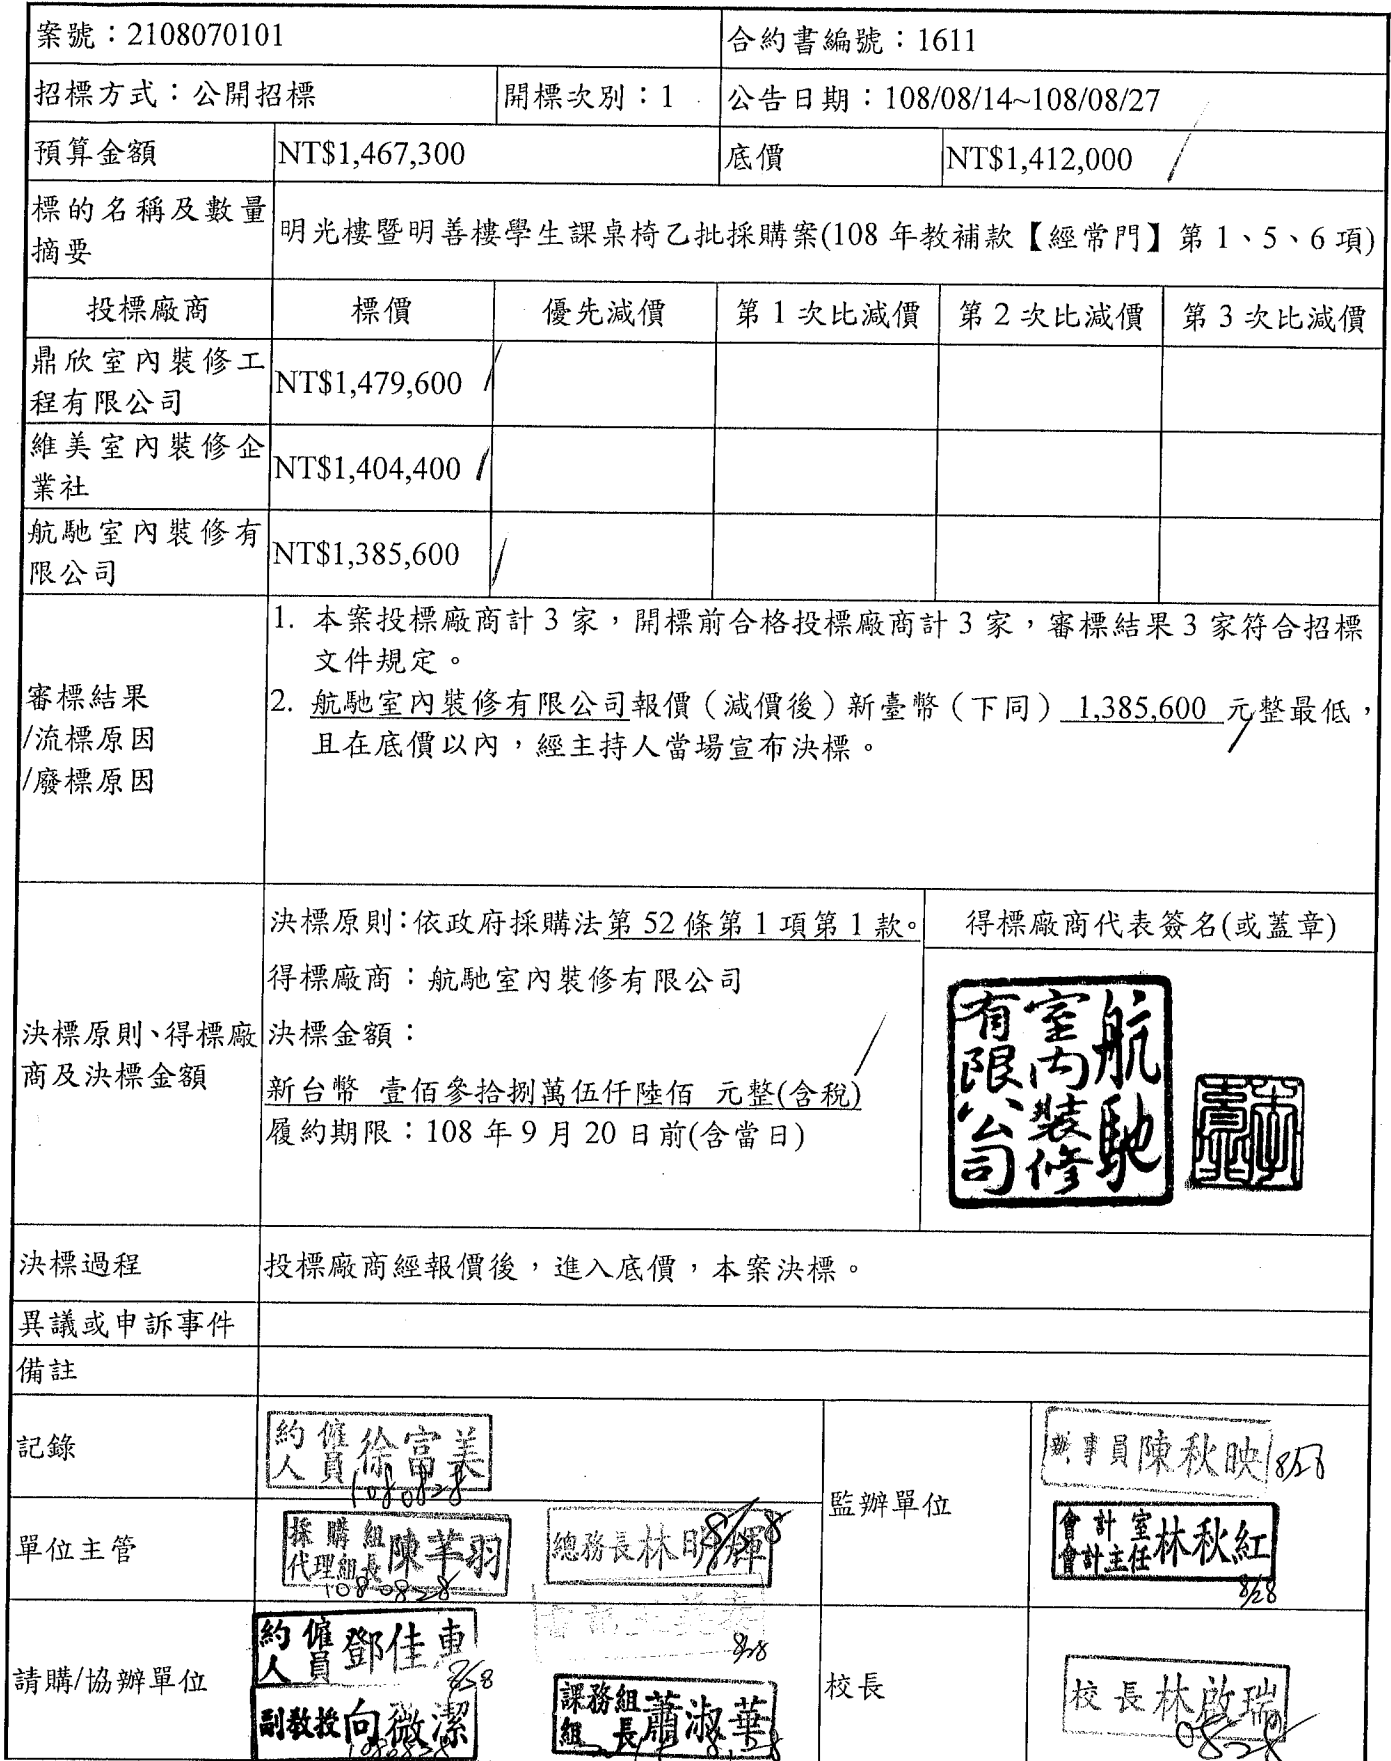 案號：2108070101
合約書編號：1611
招標方式：公開招標
開標次別：1
公告日期：108/08/14~108/08/27
預算金額
NT$1,467,300
底價
NT$1,412,000
標的名稱及數量
摘要
明光樓暨明善樓學生課桌椅乙批採購案(108 年教補款【經常門】第 1、5、6 項)
投標廠商
標價
優先減價
第 1 次比減價
第 2 次比減價
第 3 次比減價
鼎欣室內裝修工
程有限公司
NT$1,479,600
維美室內裝修企
業社
NT$1,404,400
航馳室內裝修有
限公司
NT$1,385,600
審標結果
/流標原因
/廢標原因
1. 本案投標廠商計 3 家，開標前合格投標廠商計 3 家，審標結果 3 家符合招標
文件規定。
2. 航馳室內裝修有限公司報價（減價後）新臺幣（下同） 1,385,600 元整最低，
且在底價以內，經主持人當場宣布決標。
決標原則、得標廠
商及決標金額
決標原則：依政府採購法第 52 條第 1 項第 1 款。
得標廠商：航馳室內裝修有限公司
決標金額：
新台幣 壹佰參拾捌萬伍仟陸佰 元整(含稅)
履約期限：108 年 9 月 20 日前(含當日)
得標廠商代表簽名(或蓋章)
航馳
室內裝修
有限公司
決標過程
投標廠商經報價後，進入底價，本案決標。
異議或申訴事件
備註
記錄
約僱人員 徐富美
1080828
監辦單位
辦事員陳秋映 8/28
會計室
會計主任 林秋紅
8/28
單位主管
採購組
代理組長 陳羊羽
1080828
總務長林明輝
8/28
請購/協辦單位
約僱人員 鄧佳惠
8/28
副教授 向微潔
1080828
8/28
課務組
組長 蕭淑華
校長
校長林啟瑞
0828